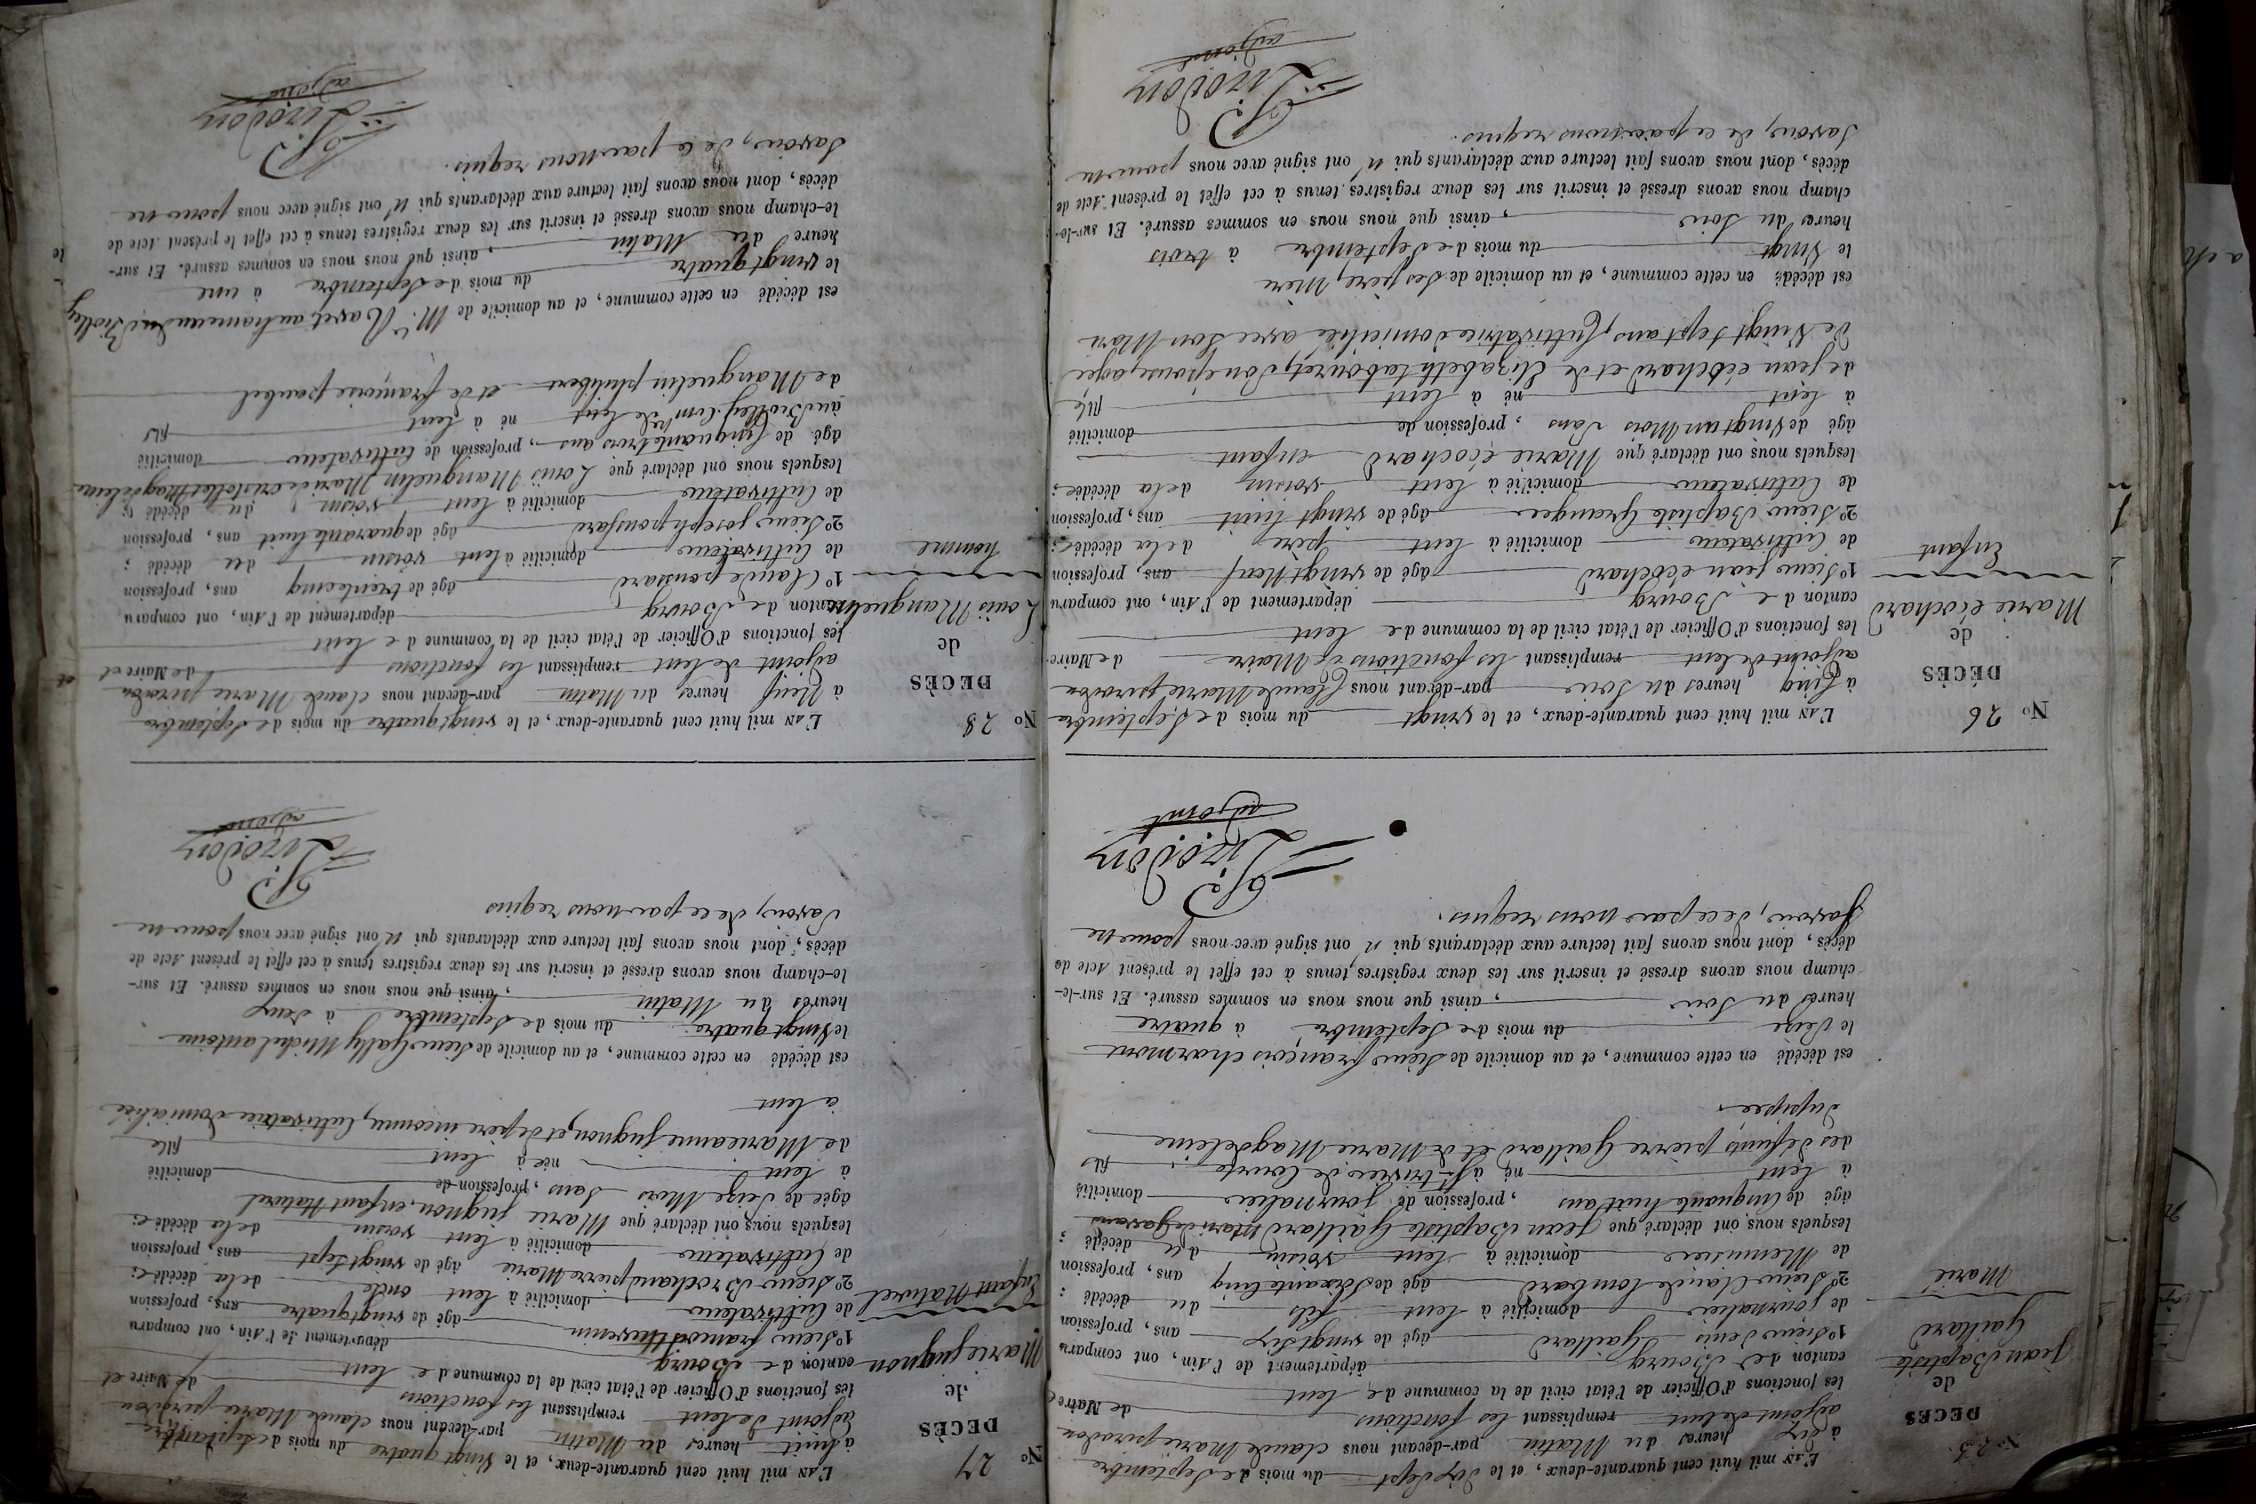 N° 25
DÉCÈS
de
Jean Baptiste
Gaillard
Marié
L'AN mil huit cent quarante-deux, et le dix sept du mois de Septembre
à six heures du Matin par-devant nous Claude Marie pirodon
adjoint de lent remplissant les fonctions de Maire
les fonctions d'Officier de l'état civil de la commune de lent
canton de Bourg département de l'Ain, ont comparu
1° Sieur Denis Gaillard âgé de vingt six ans, profession
de journalier domicilié à lent fils du décédé ;
2° Sieur Claude lombard âgé de Soixante cinq ans, profession
de Menuisier domicilié à lent voisin du décédé ;
lesquels nous ont déclaré que Jean Baptiste Gaillard Mari de
âgé de Cinquante huit ans , profession de Journalier domicilié
à lent né à St trivier de Courte fils
des défunts pierre Gaillard et de Marie Magdeleine
Dupupet
est décédé en cette commune, et au domicile de Sieur françois charmont
le Seize du mois de Septembre à quatre
heures du Soir , ainsi que nous nous en sommes assuré. Et sur-le-
champ nous avons dressé et inscrit sur les deux registres tenus à cet effet le présent Acte de
décès, dont nous avons fait lecture aux déclarants qui n' ont signé avec nous pour ne
Savoir, de ce par nous requis.
Pirodon
adjoint
N° 26
DÉCÈS
de
Marie éeochard
Enfant
L'AN mil huit cent quarante-deux, et le vingt du mois de Septembre
à Cinq heures du Soir par-devant nous Claude Marie pirodon
adjoint de lent remplissant les fonctions de Maire de Maire
les fonctions d'Officier de l'état civil de la commune de lent
canton de Bourg département de l'Ain, ont comparu
1° Sieur Jean éeochard âgé de vingt Neuf ans, profession
de Cultivateur domicilié à lent père de la décédée ;
2° Sieur Baptiste Granger âgé de vingt huit ans, profession
de Cultivateur domicilié à lent voisin de la décédée ;
lesquels nous ont déclaré que Marie éeochard enfant
âgé de Vingt un Mois Sans , profession de domicilié
à lent né à lent file
de Jean éeochard et de Elizabeth tabouret, Son épouse, agée
de Vingt Sept ans, Cultivatrice domiciliée avec Son Mari
est décédé en cette commune, et au domicile de Ses père, Mère
le Vingt du mois de Septembre à trois
heures du Soir , ainsi que nous nous en sommes assuré. Et sur-le-
champ nous avons dressé et inscrit sur les deux registres tenus à cet effet le présent Acte de
décès, dont nous avons fait lecture aux déclarants qui n' ont signé avec nous pour ne
Savoir, de ce par nous requis.
Pirodon
adjoint
N° 27
DÉCÈS
de
Marie jugnon
Enfant Naturel
L'AN mil huit cent quarante-deux, et le vingt quatre du mois de Septembre
à huit heures du Matin par-devant nous Claude Marie pirodon
adjoint de lent remplissant les fonctions de Maire et
les fonctions d'Officier de l'état civil de la commune de lent
canton de Bourg département de l'Ain, ont comparu
1° Sieur françois thevenin âgé de vingt quatre ans, profession
de Cultivateur domicilié à lent oncle de la décédée ;
2° Sieur Brochand pierre Marie âgé de vingt sept ans, profession
de Cultivateur domicilié à lent voisin de la décédée ;
lesquels nous ont déclaré que Marie jugnon, enfant Naturel
âgée de Seize Mois Sans , profession de domicilié
à lent née à lent file
de Marieanne jugnon, et de père inconnu, Cultivatrice domiciliée
à lent
est décédé en cette commune, et au domicile de Sieur Gally Michel antoine
le Vingt quatre du mois de Septembre à deux
heures du Matin , ainsi que nous nous en sommes assuré. Et sur-
le-champ nous avons dressé et inscrit sur les deux registres tenus à cet effet le présent Acte de
décès, dont nous avons fait lecture aux déclarants qui n' ont signé avec nous pour ne
Savoir, de ce par nous requis
Pirodon
adjoint
N° 28
DÉCÈS
de
Louis Manguelin
homme
L'AN mil huit cent quarante-deux, et le vingt quatre du mois de Septembre
à Neuf heures du Matin par-devant nous Claude Marie pirodon
adjoint de lent remplissant les fonctions de Maire et
les fonctions d'Officier de l'état civil de la commune de lent
canton de Bourg département de l'Ain, ont comparu
1° Claude ponsard âgé de trente cinq ans, profession
de Cultivateur domicilié à lent voisin du décédé ;
2° Sieur joseph ponsard âgé de quarante huit ans, profession
de Cultivateur domicilié à lent voisin du décédé ;
lesquels nous ont déclaré que Louis Manguelin Mari de Magdeleine
âgé de Cinquante trois ans , profession de Cultivateur domicilié
au Biolley Cne de lent né à lent fils
de Manguelin philibert et de françoise paubel
est décédé en cette commune, et au domicile de Mr Ravet au hameau du Biolley
le vingt quatre du mois de Septembre à une
heure du Matin , ainsi que nous nous en sommes assuré. Et sur-
le-champ nous avons dressé et inscrit sur les deux registres tenus à cet effet le présent Acte de
décès, dont nous avons fait lecture aux déclarants qui n' ont signé avec nous pour ne
Savoir, de ce par nous requis.
Pirodon
adjoint